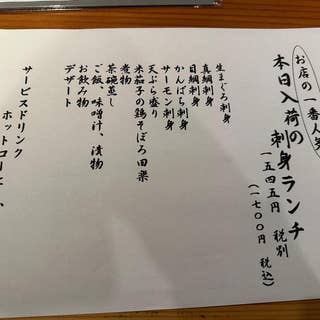 お店の一番人気
本日入荷の刺身ランチ
一五四五円 税別
(一七〇〇円 税込)
生まぐろ刺身
真鯛刺身
目鯛刺身
かんぱち刺身
サーモン刺身
天ぷら盛り
米茄子の鶏そぼろ田楽
煮物
茶碗蒸し
ご飯、味噌汁、漬物
お飲み物
デザート
サービスドリンク
ホットコーヒー、